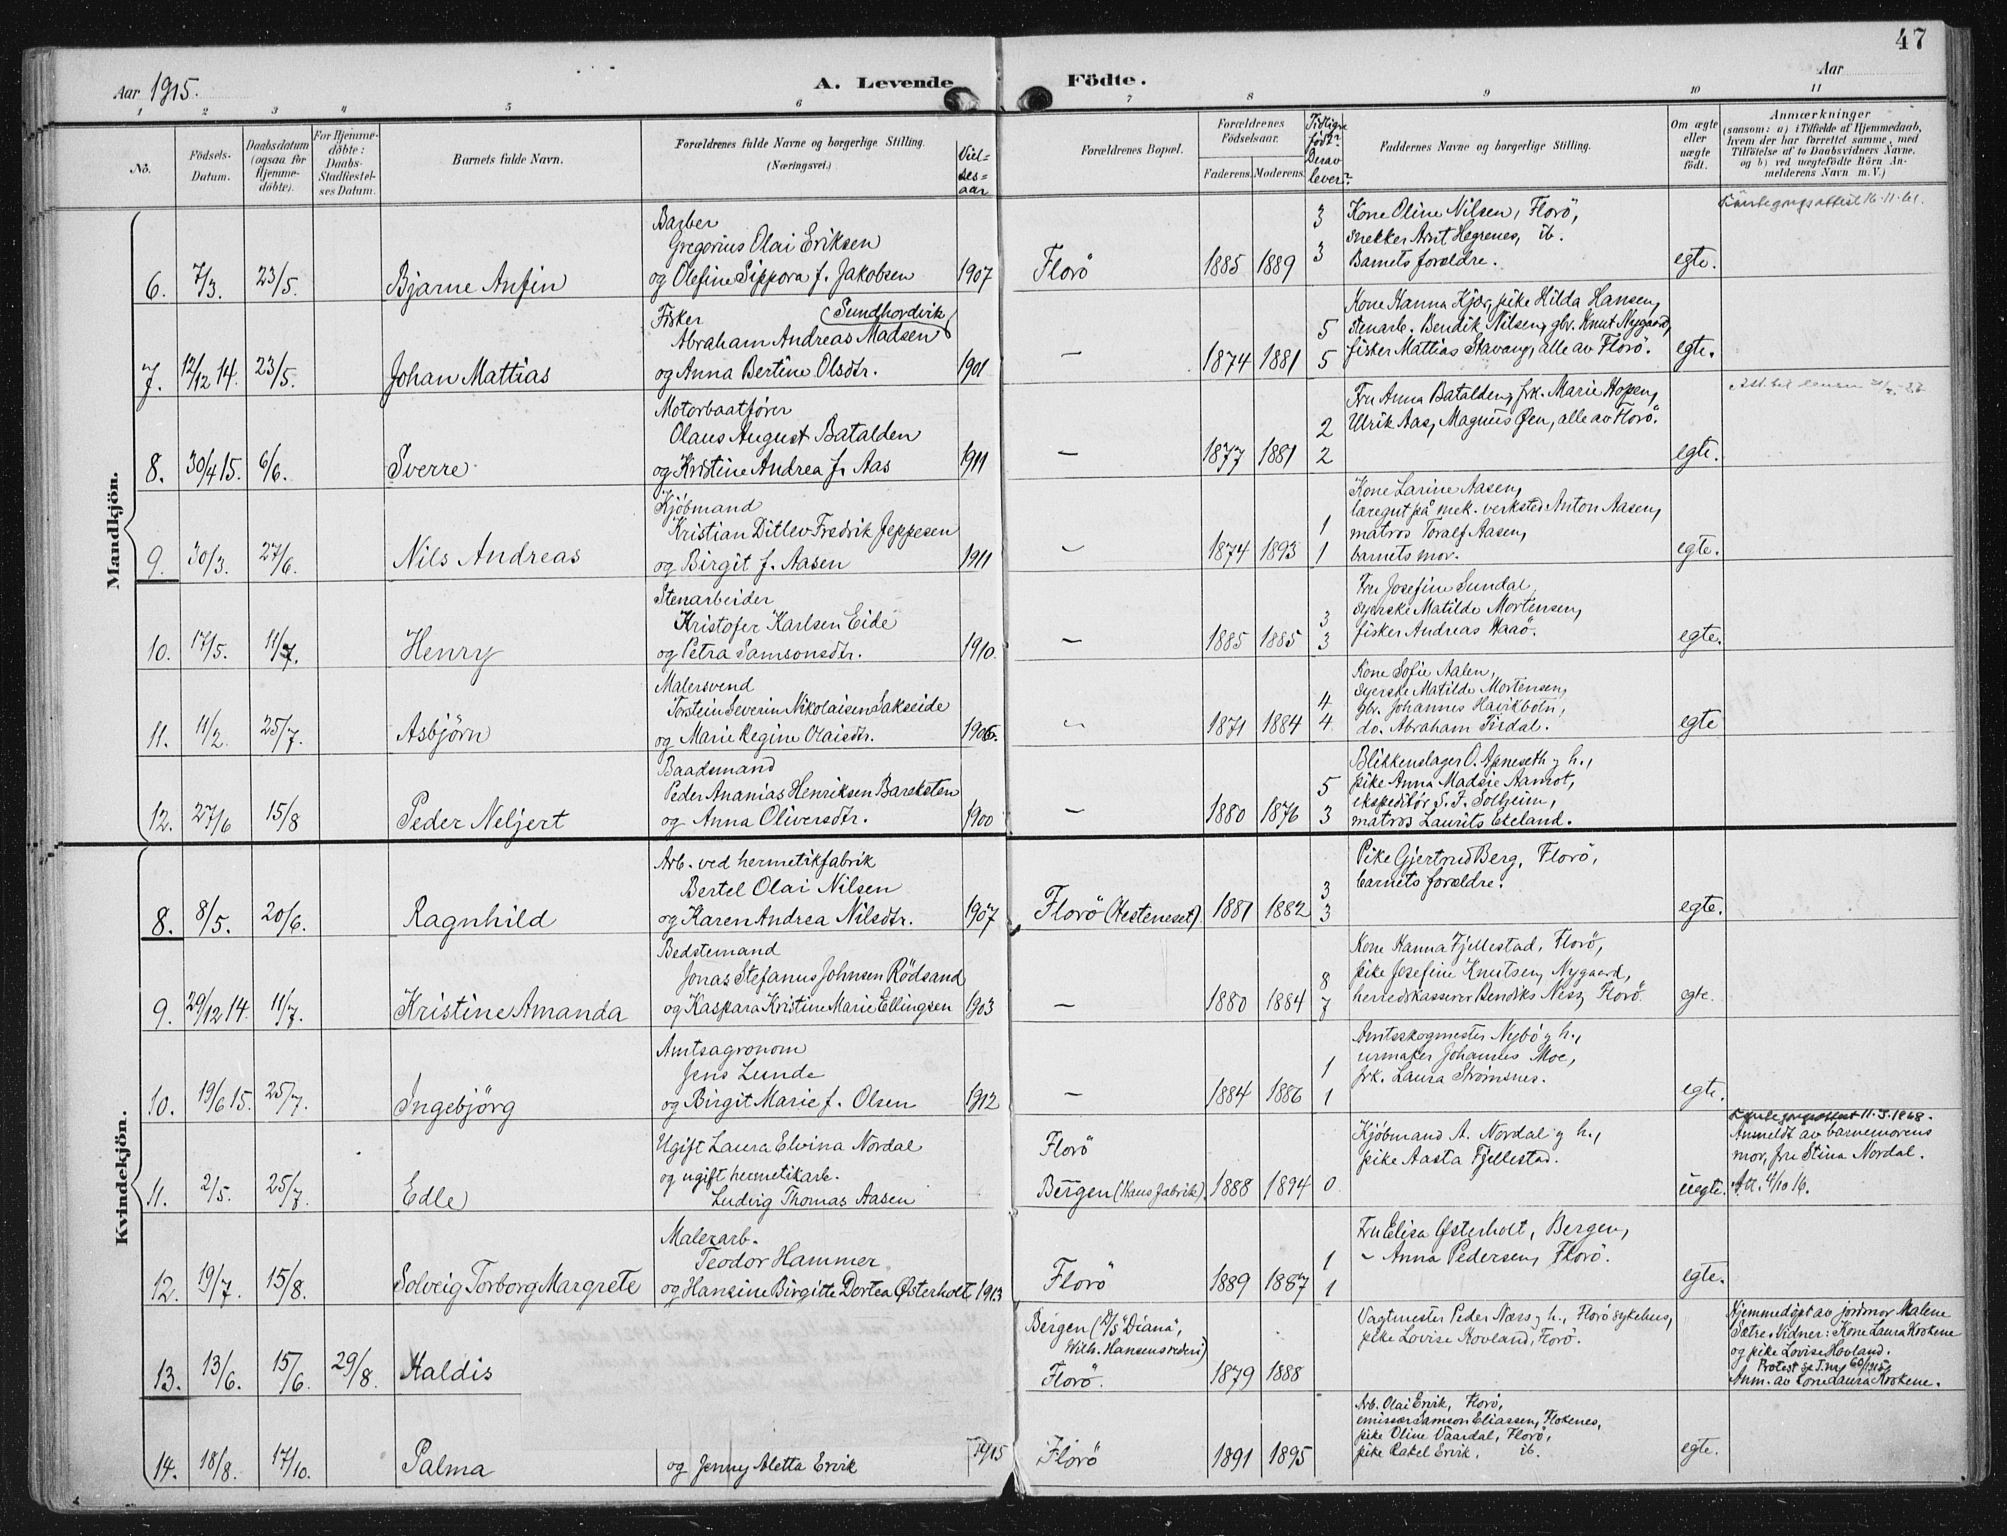 47
Aar 1915.
A. Levende
Födte.
Aar
1 2 3 4 5 6 7 8 9 10 11
No.
Födsels-Datum.
Daabsdatum (ogsaa for Hjemmedöbte).
For Hjemmedöbte: Daabs-Stadfæstelses Datum.
Barnets fulde Navn.
Forældrenes fulde Navne og borgerlige Stilling.
(Næringsvei.)
Vielsesaar
Forældrenes Bopæl.
Forældrenes Födselsaar.
Faderens. Moderens.
Tidligre födt? Derav lever?
Faddernes Navne og borgerlige Stilling.
Om ægte eller uægte födt.
Anmærkninger
(saasom: a) i Tilfælde af Hjemmedaab,
hvem der har forrettet samme, med
Tilföielse af to Daabsvidners Navne.
og b) ved uegtefödte Börn An-
melderens Navn m. V.)
Mandkjön.
6. 7/3. 23/5. Bjarne Anfin
Barber
Gregorius Olai Eriksen
og Olefine Sippora f. Jakobsen 1907
Florö 1885 1889 3 3
Kone Oline Nilsen, Florö,
snekker Arnt Hegrenes, ib.
Barnets forældre.
egte.
16.11.61.
7. 12/12 14. 23/5. Johan Mattias
Fisker (Sundhordvik)
Abraham Andreas Madsen
og Anna Bertine Olsdtr. 1901
— 1874 1881 5 5
Kone Hanna Kjær, pike Hilda Hansen,
stenarb. Bendik Nilsen, gbr. Knut Nygaard,
fisker Mattias Stavang, alle av Florö.
egte.
8. 30/4 15. 6/6. Sverre
Motorbaatfører
Olaus August Batalden
og Kristine Andrea f. Aas 1911
— 1877 1881 2 2
Fru Anna Batalden, frk. Marie Hopen,
Ulrik Aas, Magnus Øen, alle av Florö.
egte.
9. 30/3. 27/6. Nils Andreas
Kjöbmand
Kristian Ditlev Fredrik Jeppesen
og Birgit f. Aasen 1911
— 1874 1893 1 1
Kone Larine Aasen,
læregut på mek. verksted Anton Aasen,
matros Toralf Aasen,
barnets mor.
egte.
10. 17/5. 11/7. Henry
Stenarbeider
Kristofer Karlsen Eide
og Petra Samsonsdtr. 1910.
— 1885 1885 3 3
Fru Josefine Sundal,
syerske Matilde Mortensen,
fisker Andreas Haaö.
egte.
11. 11/2. 25/7. Asbjörn
Malersvend
Torstein Severin Nikolaisen Sakseide
og Marie Regine Olaisdtr. 1906.
— 1871 1884 4 4.
Kone Sofie Aalen,
syerske Matilde Mortensen,
gbr. Johannes Havikbotn,
do. Abraham Tirdal.
egte
12. 27/6 15/8 Peder Neljert
Baadsmand
Peder Ananias Henriksen Bareksten
og Anna Oliversdtr. 1900
— 1880 1876 5 3
Blikkenslager O. Apneseth y h.,
pike Anna Madsie Aamot,
ekspeditör S. F. Solheim,
matros Laurits Ekeland.
Kvindekjön.
8. 8/5. 20/6. Ragnhild
Arb. ved hermetikfabrik
Bertel Olai Nilsen
og Karen Andrea Nilsdtr. 1907
Florö (Hesteneset). 1881 1882 3 3
Pike Gjertrud Berg, Florö,
barnets forældre.
egte.
9. 29/12 14. 11/7. Kristine Amanda
Bedstemand
Jonas Stefanus Johnsen Rödsand
og Kaspara Kristine Marie Ellingsen 1903
— 1880 1884 8 7
Kone Hanna Fjellestad, Florö,
pike Josefine Knutsen, Nygaard,
herredskasserer Bendiks Ness, Florö.
egte.
10. 19/6 15. 25/7. Ingebjörg
Amtsagronom
Jens Lunde
og Birgit Marie f. Olsen 1912
— 1884 1886 1 1
Amtsskogmester Nybö y h.,
urmaker Johannes Moe,
frk. Laura Strömsnes.
egte.
11. 2/5. 25/7. Edle
Ugift Laura Elvina Nordal
og ugift hermetikarb.
Ludvig Thomas Aasen
Florö
Bergen (Hans fabrik). 1888 1894 0
Kjöbmand A. Nordal y h.,
pike Aasta Fjellestad.
uegte.
11.3.1868.
Anmeldt av barnemorens
mor, fru Stina Nordal.
Att. 4/10 16.
12. 19/7. 15/8. Solveig Torborg Margrete
Malerarb.
Teodor Hammer
og Hansine Birgitte Dortea Østerholt 1913
Florö 1889 1887 1 1
Fru Elisa Østerholt, Bergen,
~ Anna Pedersen, Florö.
egte.
13. 13/6. 15/6. 29/8. Haldis
Bergen (D/S "Diana",
Wilh. Hansens rederi)
Florö. 1879 1888
Vagtmester Peder Næss y h., Florö sykehus,
pike Lovise Hovland, Florö.
Hjemmedöpt av jordmor Malene
Sætre. Vidner: Kone Laura Kroken
og pike Lovise Hovland.
Protest se J.nr. 60/1915
Anm. av kone Laura Kroken.
14. 18/8. 17/10. Palma
og Jenny Aletta Ervik 1915
Florö 1891 1895
Arb. Olai Ervik, Florö,
emissær Samson Eliassen, Flokenes,
pike Oline Vaardal, Florö,
pike Rakel Ervik, ib.
egte.